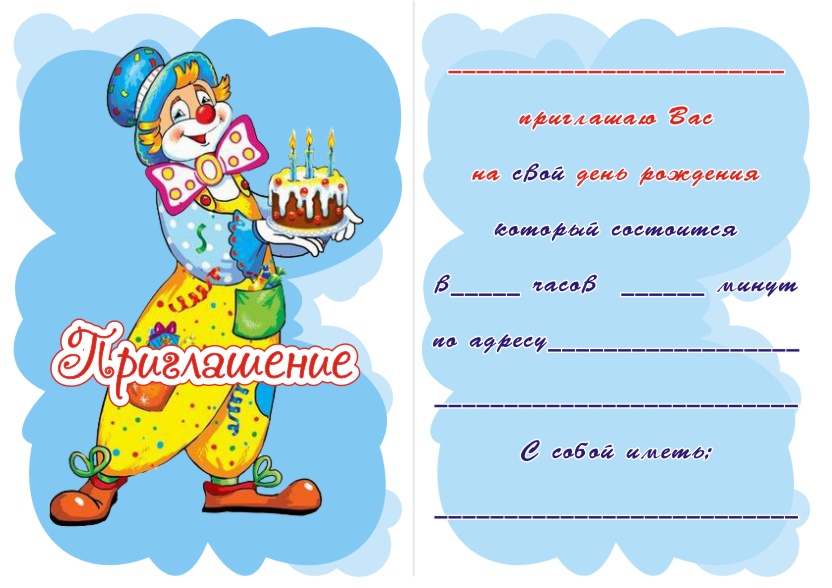 Приглашение
__________________________
приглашаю Вас
на свой день рождения
который состоится
в_____ часов ______ минут
по адресу__________________
__________________________
С собой иметь:
__________________________